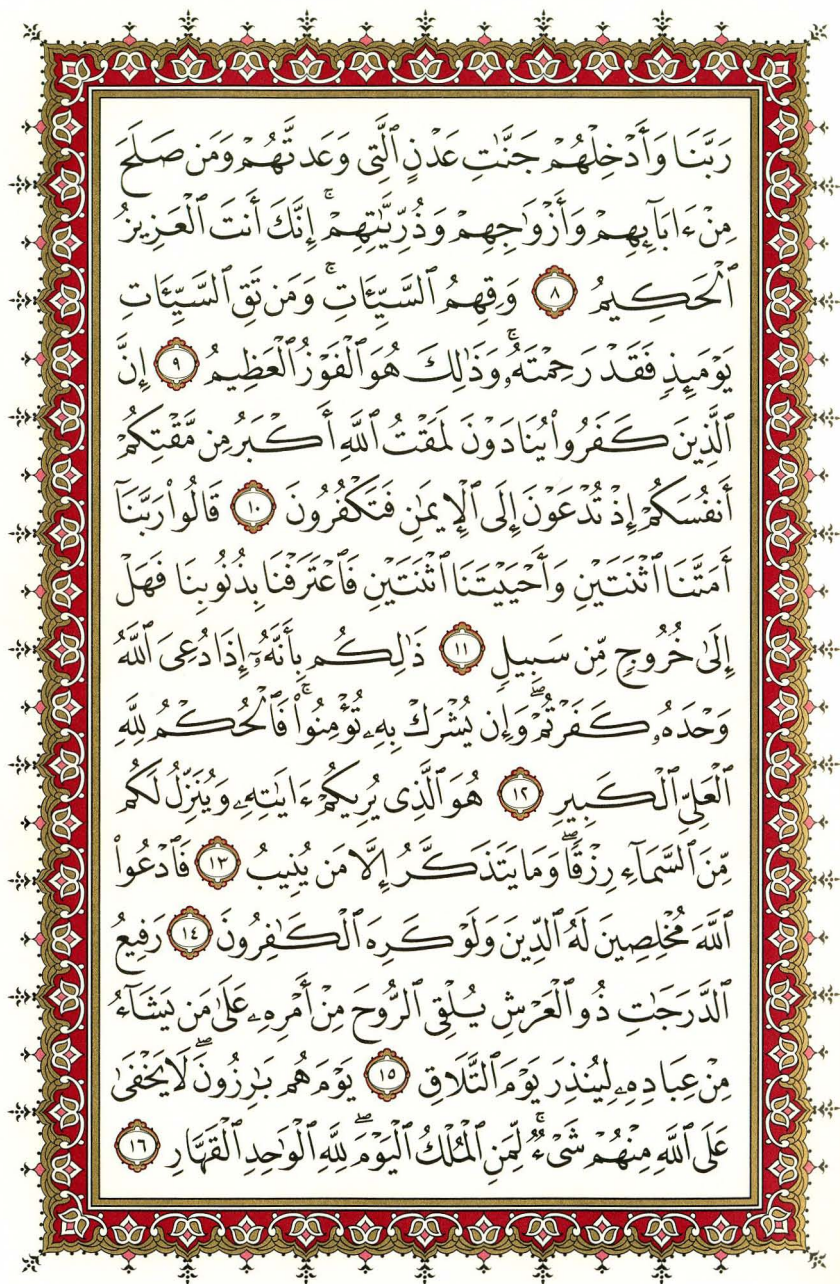 رَبَّنَا وَأَدْخِلْهُمْ جَنَّٰتِ عَدْنٍ ٱلَّتِى وَعَدتَّهُمْ وَمَن صَلَحَ
مِنْ ءَابَآئِهِمْ وَأَزْوَٰجِهِمْ وَذُرِّيَّٰتِهِمْ ۚ إِنَّكَ أَنتَ ٱلْعَزِيزُ
ٱلْحَكِيمُ ٨ وَقِهِمُ ٱلسَّيِّـَٔاتِ ۚ وَمَن تَقِ ٱلسَّيِّـَٔاتِ
يَوْمَئِذٍ فَقَدْ رَحِمْتَهُۥ ۚ وَذَٰلِكَ هُوَ ٱلْفَوْزُ ٱلْعَظِيمُ ٩ إِنَّ
ٱلَّذِينَ كَفَرُوا۟ يُنَادَوْنَ لَمَقْتُ ٱللَّهِ أَكْبَرُ مِن مَّقْتِكُمْ
أَنفُسَكُمْ إِذْ تُدْعَوْنَ إِلَى ٱلْإِيمَٰنِ فَتَكْفُرُونَ ١٠ قَالُوا۟ رَبَّنَآ
أَمَتَّنَا ٱثْنَتَيْنِ وَأَحْيَيْتَنَا ٱثْنَتَيْنِ فَٱعْتَرَفْنَا بِذُنُوبِنَا فَهَلْ
إِلَىٰ خُرُوجٍ مِّن سَبِيلٍ ١١ ذَٰلِكُم بِأَنَّهُۥٓ إِذَا دُعِىَ ٱللَّهُ
وَحْدَهُۥ كَفَرْتُمْ ۖ وَإِن يُشْرَكْ بِهِۦ تُؤْمِنُوا۟ ۚ فَٱلْحُكْمُ لِلَّهِ
ٱلْعَلِىِّ ٱلْكَبِيرِ ١٢ هُوَ ٱلَّذِى يُرِيكُمْ ءَايَٰتِهِۦ وَيُنَزِّلُ لَكُم
مِّنَ ٱلسَّمَآءِ رِزْقًا ۚ وَمَا يَتَذَكَّرُ إِلَّا مَن يُنِيبُ ١٣ فَٱدْعُوا۟
ٱللَّهَ مُخْلِصِينَ لَهُ ٱلدِّينَ وَلَوْ كَرِهَ ٱلْكَٰفِرُونَ ١٤ رَفِيعُ
ٱلدَّرَجَٰتِ ذُو ٱلْعَرْشِ يُلْقِى ٱلرُّوحَ مِنْ أَمْرِهِۦ عَلَىٰ مَن يَشَآءُ
مِنْ عِبَادِهِۦ لِيُنذِرَ يَوْمَ ٱلتَّلَاقِ ١٥ يَوْمَ هُم بَٰرِزُونَ ۖ لَا يَخْفَىٰ
عَلَى ٱللَّهِ مِنْهُمْ شَىْءٌ ۚ لِّمَنِ ٱلْمُلْكُ ٱلْيَوْمَ ۖ لِلَّهِ ٱلْوَٰحِدِ ٱلْقَهَّارِ ١٦